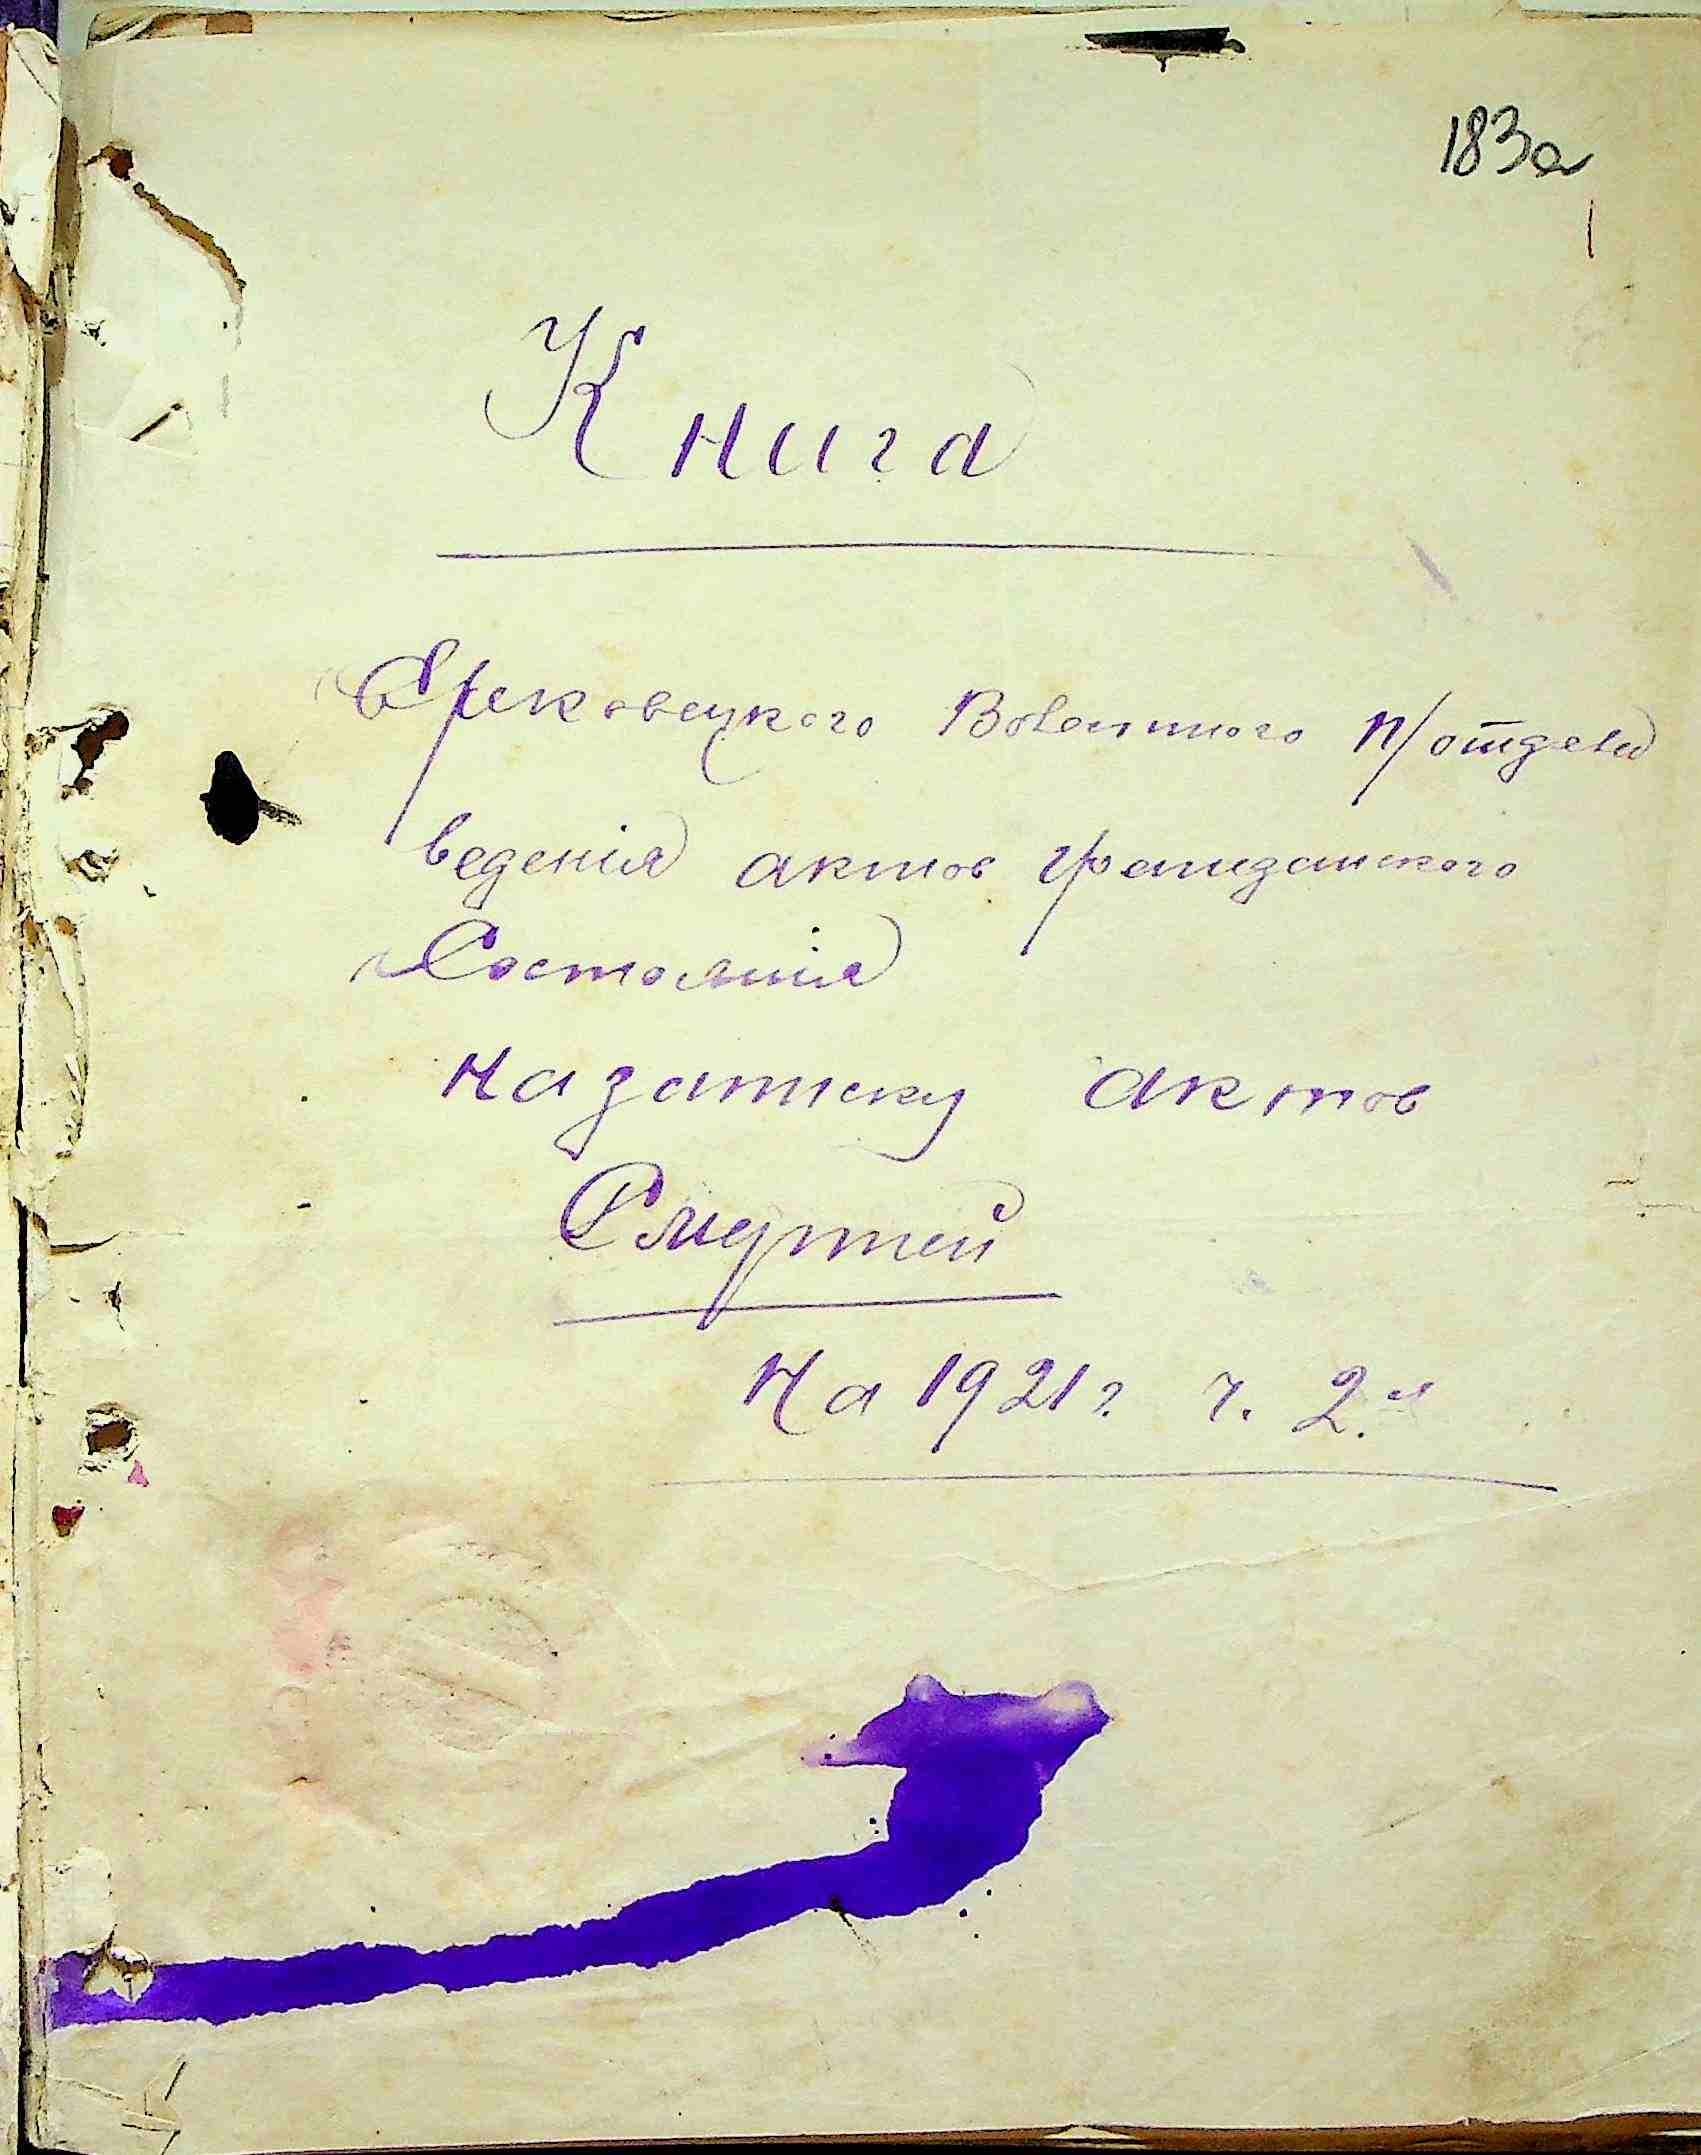 183а
Книга
Ореховецкого Волостного п/отдела
ведения актов гражданского
Состояния
На записку актов
Смертей
На 1921 г. ч. 2.я